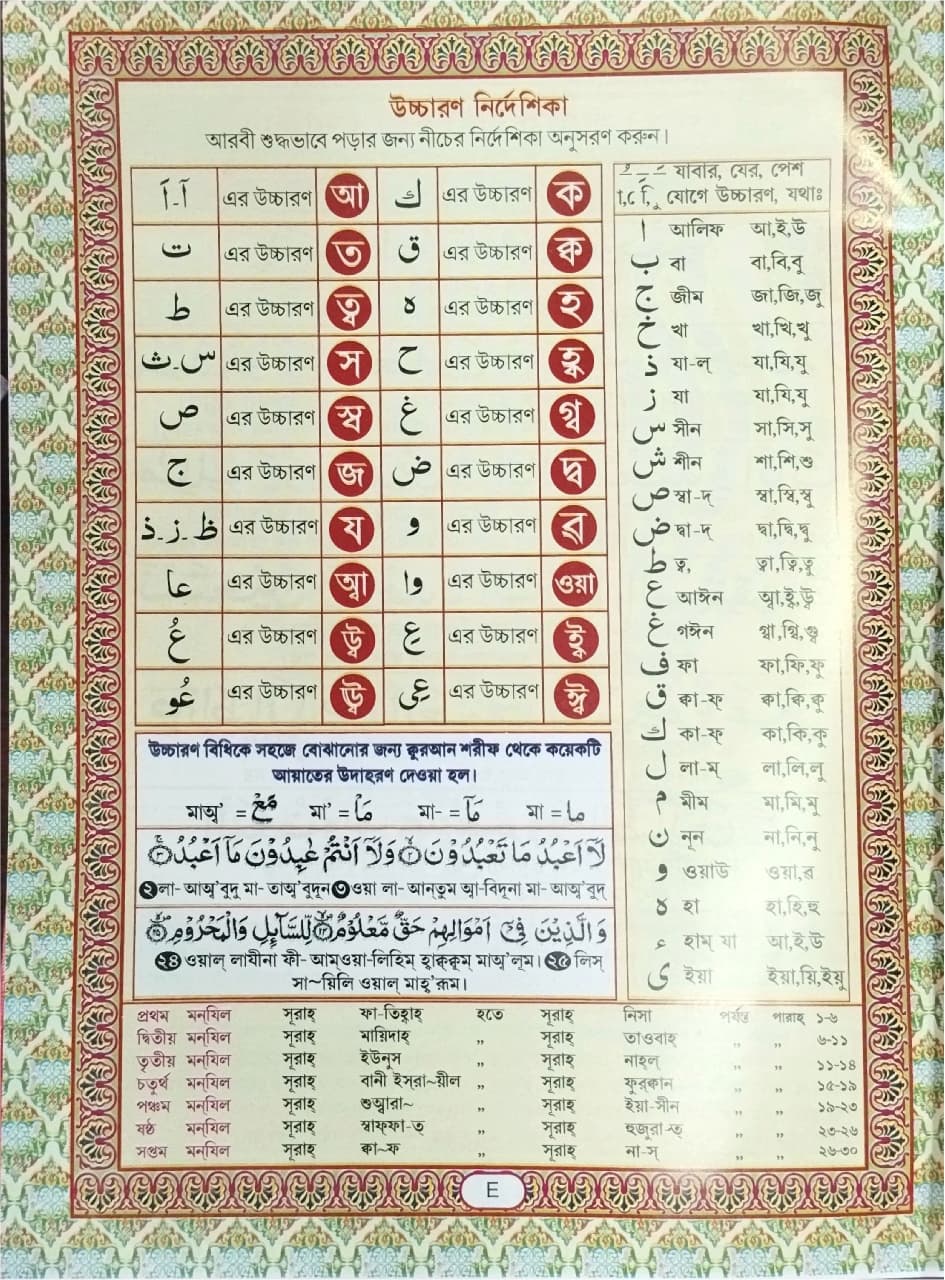 উচ্চারণ নির্দেশিকা
আরবী শুদ্ধভাবে পড়ার জন্য নীচের নির্দেশিকা অনুসরণ করুন।
آ۔اَ এর উচ্চারণ আ ك এর উচ্চারণ ক
ت এর উচ্চারণ ত ق এর উচ্চারণ ক্ব
ط এর উচ্চারণ ত্ব ه এর উচ্চারণ হ
س۔ث এর উচ্চারণ স ح এর উচ্চারণ হ্ব
ص এর উচ্চারণ স্ব غ এর উচ্চারণ গ্ব
ج এর উচ্চারণ জ ض এর উচ্চারণ দ্ব
ظ۔ز۔ذ এর উচ্চারণ য و এর উচ্চারণ ৱ
عا এর উচ্চারণ আ্ব وا এর উচ্চারণ ওয়া
عُ এর উচ্চারণ উ্ব عِ এর উচ্চারণ ই্ব
عُو এর উচ্চারণ ঊ্ব عِى এর উচ্চারণ ঈ্ব
যাবার, যের, পেশ
যোগে উচ্চারণ, যথাঃ
ا আলিফ আ,ই,উ
ب বা বা,বি,বু
ج জীম জা,জি,জু
خ খা খা,খি,খু
ذ যা-ল্ যা,যি,যু
ز যা যা,যি,যু
س সীন সা,সি,সু
ش শীন শা,শি,শু
ص স্বা-দ্ স্বা,স্বি,স্বু
ض দ্বা-দ্ দ্বা,দ্বি,দ্বু
ط ত্ব, ত্বা,ত্বি,ত্বু
ع আঈন আ্ব,ই্ব,উ্ব
غ গঈন গ্বা,গ্বি,গ্বু
ف ফা ফা,ফি,ফু
ق ক্বা-ফ্ ক্বা,ক্বি,ক্বু
ك কা-ফ্ কা,কি,কু
ل লা-ম্ লা,লি,লু
م মীম মা,মি,মু
ن নূন না,নি,নু
و ওয়াউ ওয়া,ৱ
ه হা হা,হি,হু
ء হাম্ যা আ,ই,উ
ى ইয়া ইয়া,য়ি,ইয়ু
উচ্চারণ বিধিকে সহজে বোঝানোর জন্য ক্বুরআন শরীফ থেকে কয়েকটি
আয়াতের উদাহরণ দেওয়া হল।
মাঅ্ব' = مَعْ মা' = مَاْ মা- = مَآ মা = ما
لَاۤ اَعْبُدُ مَا تَعْبُدُوْنَ ۝۲ وَلَاۤ اَنْتُمْ عٰبِدُوْنَ مَاۤ اَعْبُدُ ۝۳
২ লা- আঅ্ব'বুদু মা- তাঅ্ব'বুদূন ৩ ওয়া লা- আনতুম আ্ব-বিদূনা মা- আঅ্ব'বুদ্
وَالَّذِيْنَ فِىْۤ اَمْوَالِهِمْ حَقٌّ مَّعْلُوْمٌ ۝۲۴ لِّلسَّآئِلِ وَالْمَحْرُوْمِ ۝۲۵
২৪ ওয়াল লাযীনা ফী- আম্ওয়া-লিহিম্ হ্বাক্ক্বুম্ মাঅ্ব'লূম। ২৫ লিস্
সা~য়িলি ওয়াল্ মাহ্ব'রূম।
প্রথম মনযিল সূরাহ্ ফা-তিহ্বাহ্ হতে সূরাহ্ নিসা পর্যন্ত পারাহ্ ১-৬
দ্বিতীয় মনযিল সূরাহ্ মায়িদাহ্ ,, সূরাহ্ তাওবাহ্ ,, ,, ৬-১১
তৃতীয় মনযিল সূরাহ্ ইউনুস ,, সূরাহ্ নাহ্ল ,, ,, ১১-১৪
চতুর্থ মনযিল সূরাহ্ বানী ইস্রা~য়ীল ,, সূরাহ্ ফুরক্বান ,, ,, ১৫-১৯
পঞ্চম মনযিল সূরাহ্ শুআ্বারা~ ,, সূরাহ্ ইয়া-সীন ,, ,, ১৯-২৩
ষষ্ঠ মনযিল সূরাহ্ স্বাফ্ফা-ত্ ,, সূরাহ্ হুজুরা-ত্ ,, ,, ২৩-২৬
সপ্তম মনযিল সূরাহ্ ক্বা-ফ ,, সূরাহ্ না-স্ ,, ,, ২৬-৩০
E